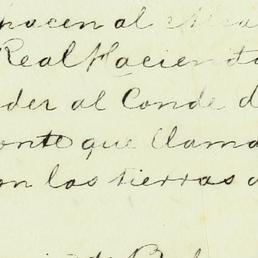 hacen al
Real Haciend
der al Conde d
onte que llama
on las tierras d
de